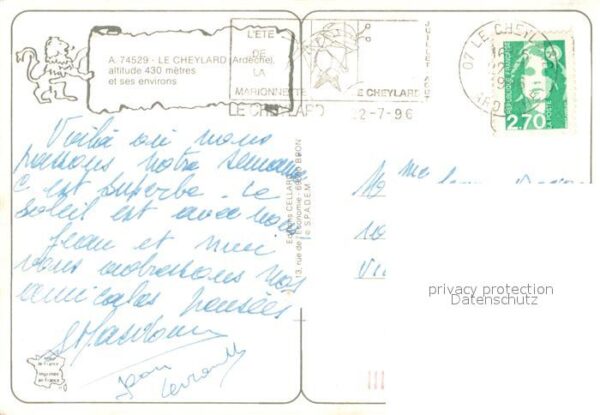 A 74529 - LE CHEYLARD (Ardèche),
altitude 430 mètres
et ses environs
L'ÉTÉ
DE
LA
MARIONNETTE
LE CHEYLARD
JUILLET AOUT
LE CHEYLARD 22-7-96
07 LE CHEYLARD
ARDECHE
REPUBLIQUE FRANÇAISE
LA POSTE
2,70
Voilà où nous
passons notre semaine
C'est superbe. Le
soleil est avec nous
Jean et moi
vous adressons nos
amicales pensées
Jean
Editions CELLARD
13, rue de l'Economie - 69500 BRON
© S.P.A.D.E.M.
Mme
10
privacy protection
Datenschutz
imprimé
en France